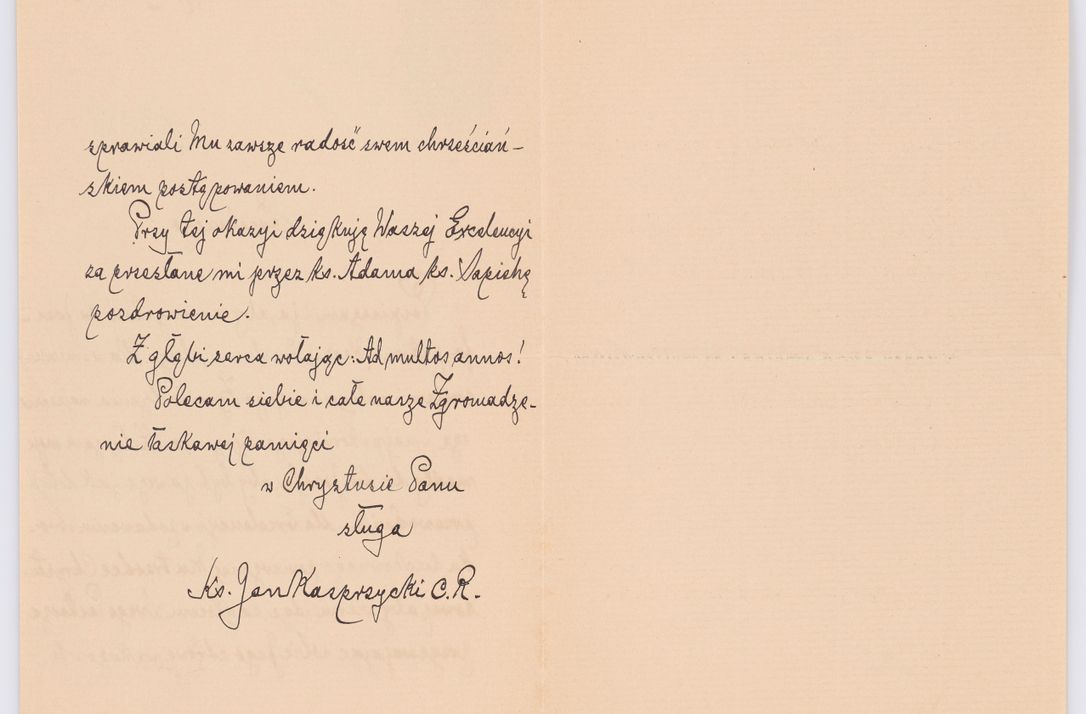 sprawiali Mu zawsze radość swem chrześciań-
skiem postępowaniem.
Przy tej okazyi dziękuję Waszej Excelencyi
za przesłane mi przez ks. Adama ks. Sapiehę
pozdrowienie.
Z głębi serca wołając: Ad multos annos!
Polecam siebie i całe nasze Zgromadze-
nie łaskawej pamięci
w Chrystusie Panu
sługa
Ks. Jan Kasprzycki C.R.